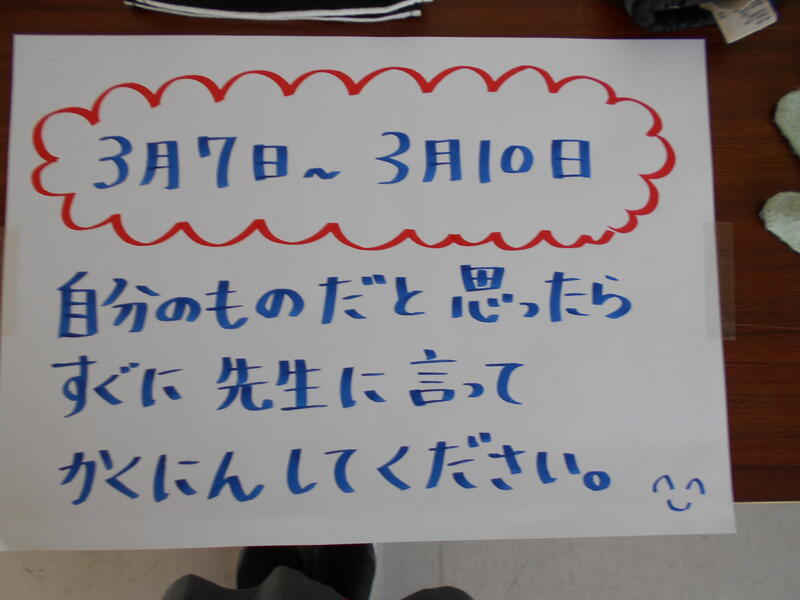 3月7日～3月10日
自分のものだと思ったら
すぐに先生に言って
かくにんしてください。